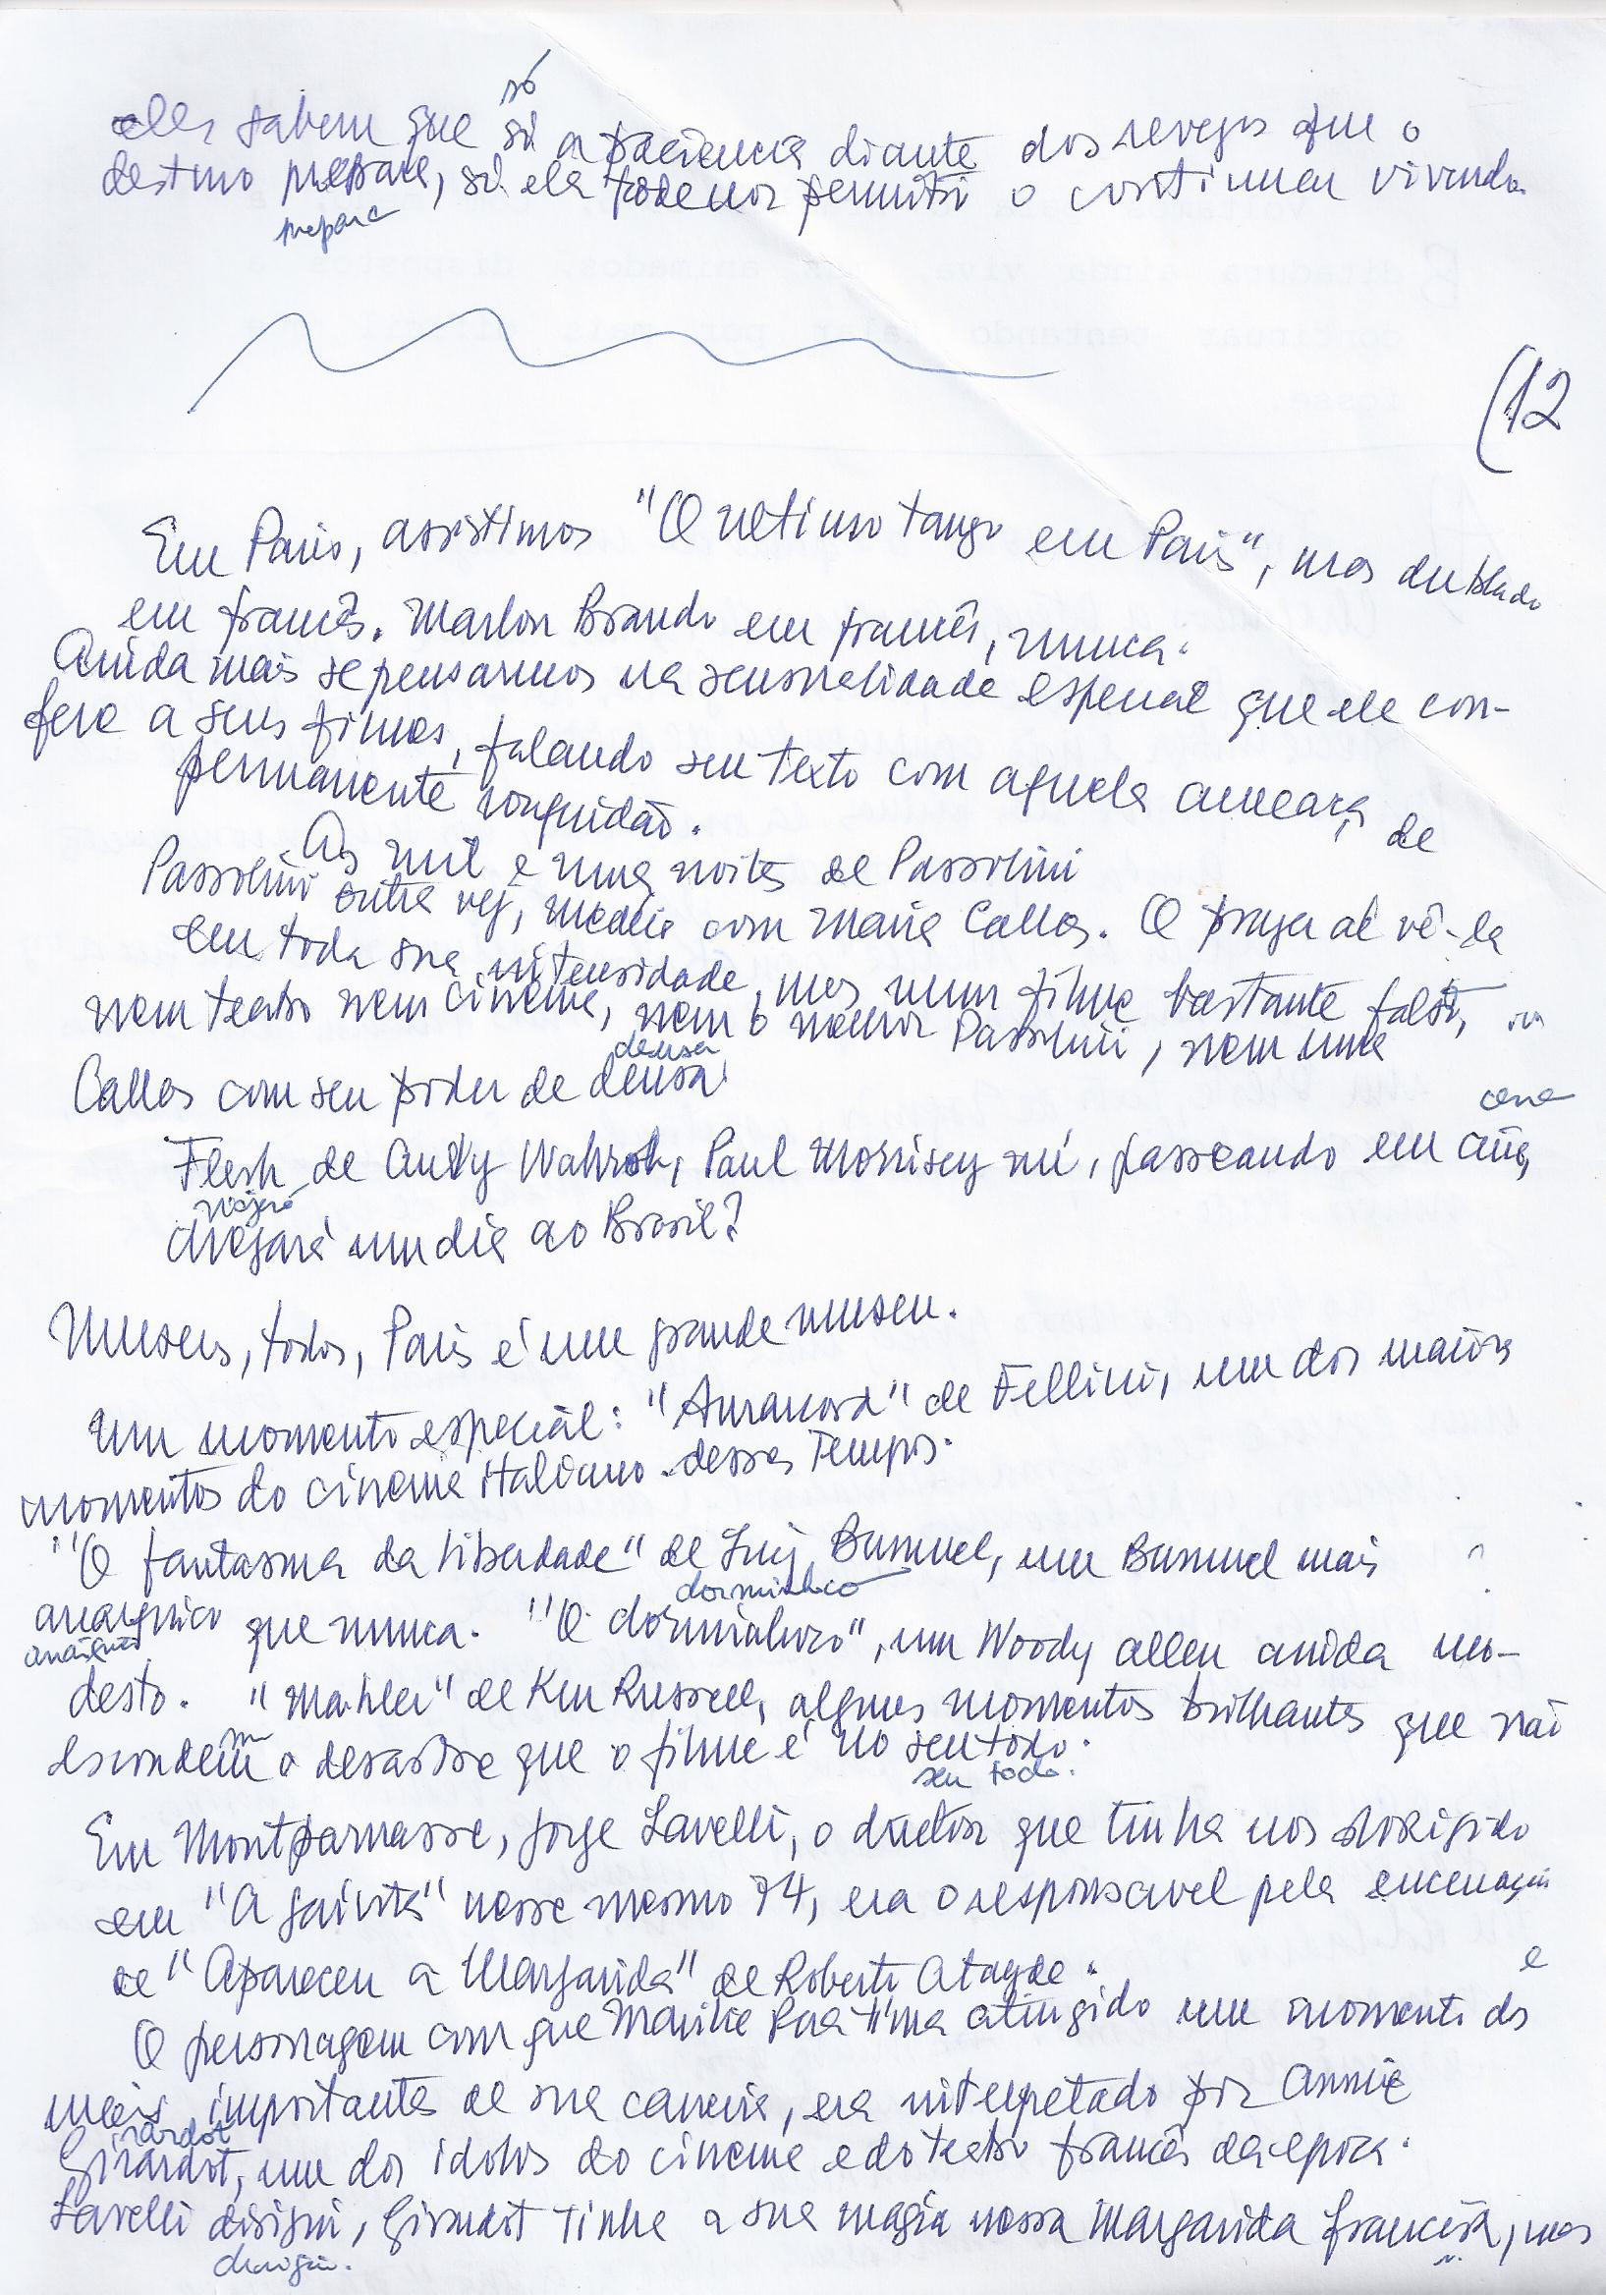 só
eles sabem que só a paciencia diante dos revezes que o
destino prepara, só ela pode nos permitir o continuar vivendo
prepara
(12
Em Paris, assistimos "O ultimo tango em Paris", mas dublado
em francês. Marlon Brando em francês, nunca.
Ainda mais se pensarmos na sensualidade especial que ele con-
fere a seus filmes, falando seu texto com aquela de
permanente rouquidão.
As mil e uma noites de Pasolini
Pasolini outra vez, Medeia com Maria Callas. O prazer de vê-la
em toda sua intensidade, mas num filme bastante falso,
nem teatro nem cinema, nem o melhor Pasolini, nem uma
deusa
Callas com seu poder de deusa
cena
Flesh de Andy Wahrol, Paul Morrisey nú, passeando em cena,
viajará
chegará um dia ao Brasil?
Museus, todos, Paris é um grande museu.
Um momento especial: "Amarcord" de Fellini, um dos maiores
momentos do cinema italiano desses tempos.
"O fantasma da liberdade" de Luiz Bunuel, um Bunuel mais ?
dorminhoco
anarquico que nunca. "O dorminhoco", um Woody Allen ainda mo-
desto. "Mahler" de Ken Russell, alguns momentos brilhantes que não
m
escondem o desastre que o filme é no seu todo.
seu todo.
Em Montparnasse, Jorge Lavelli, o diretor que tinha nos dirigido
em "A gaivota" nesse mesmo 74, era o responsavel pela encenação
de "Apareceu a Margarida" de Roberto Atayde. e
O personagem com que Marilia Pera tinha atingido um momento dos
mais importantes de sua carreira, era interpretado por Annie
irardot
Girardot, um dos idolos do cinema e do teatro francês da epoca.
Lavelli dirigiu, Girardot tinha a sua magia nessa Margarida francesa, mas
dirigiu.